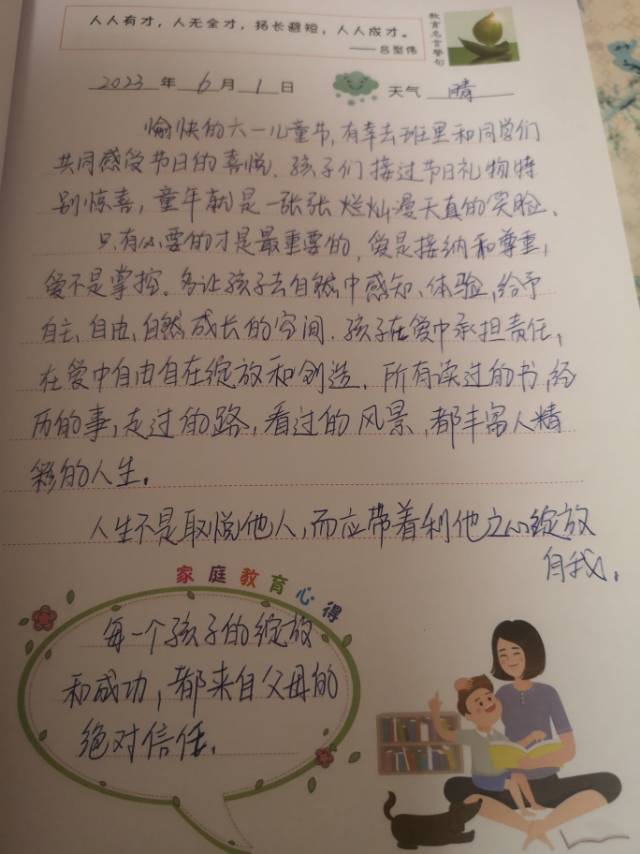 人人有才，人无全才，扬长避短，人人成才。
——吕型伟
教育名言警句
2023 年 6 月 1 日 天气 晴
愉快的六一儿童节，有幸去班里和同学们
共同感受节日的喜悦。孩子们接过节日礼物特
别惊喜，童年就是一张张烂灿漫天真的笑脸。
只有必要的才是最重要的，爱是接纳和尊重，
爱不是掌控。多让孩子去自然中感知、体验，给予
自主、自由、自然成长的空间。孩子在爱中承担责任，
在爱中自由自在绽放和创造。所有读过的书，经
历的事，走过的路，看过的风景，都丰富人精
彩的人生。
人生不是取悦他人，而应带着利他之心绽放
自我。
家庭教育心得
每一个孩子的绽放
和成功，都来自父母的
绝对信任。